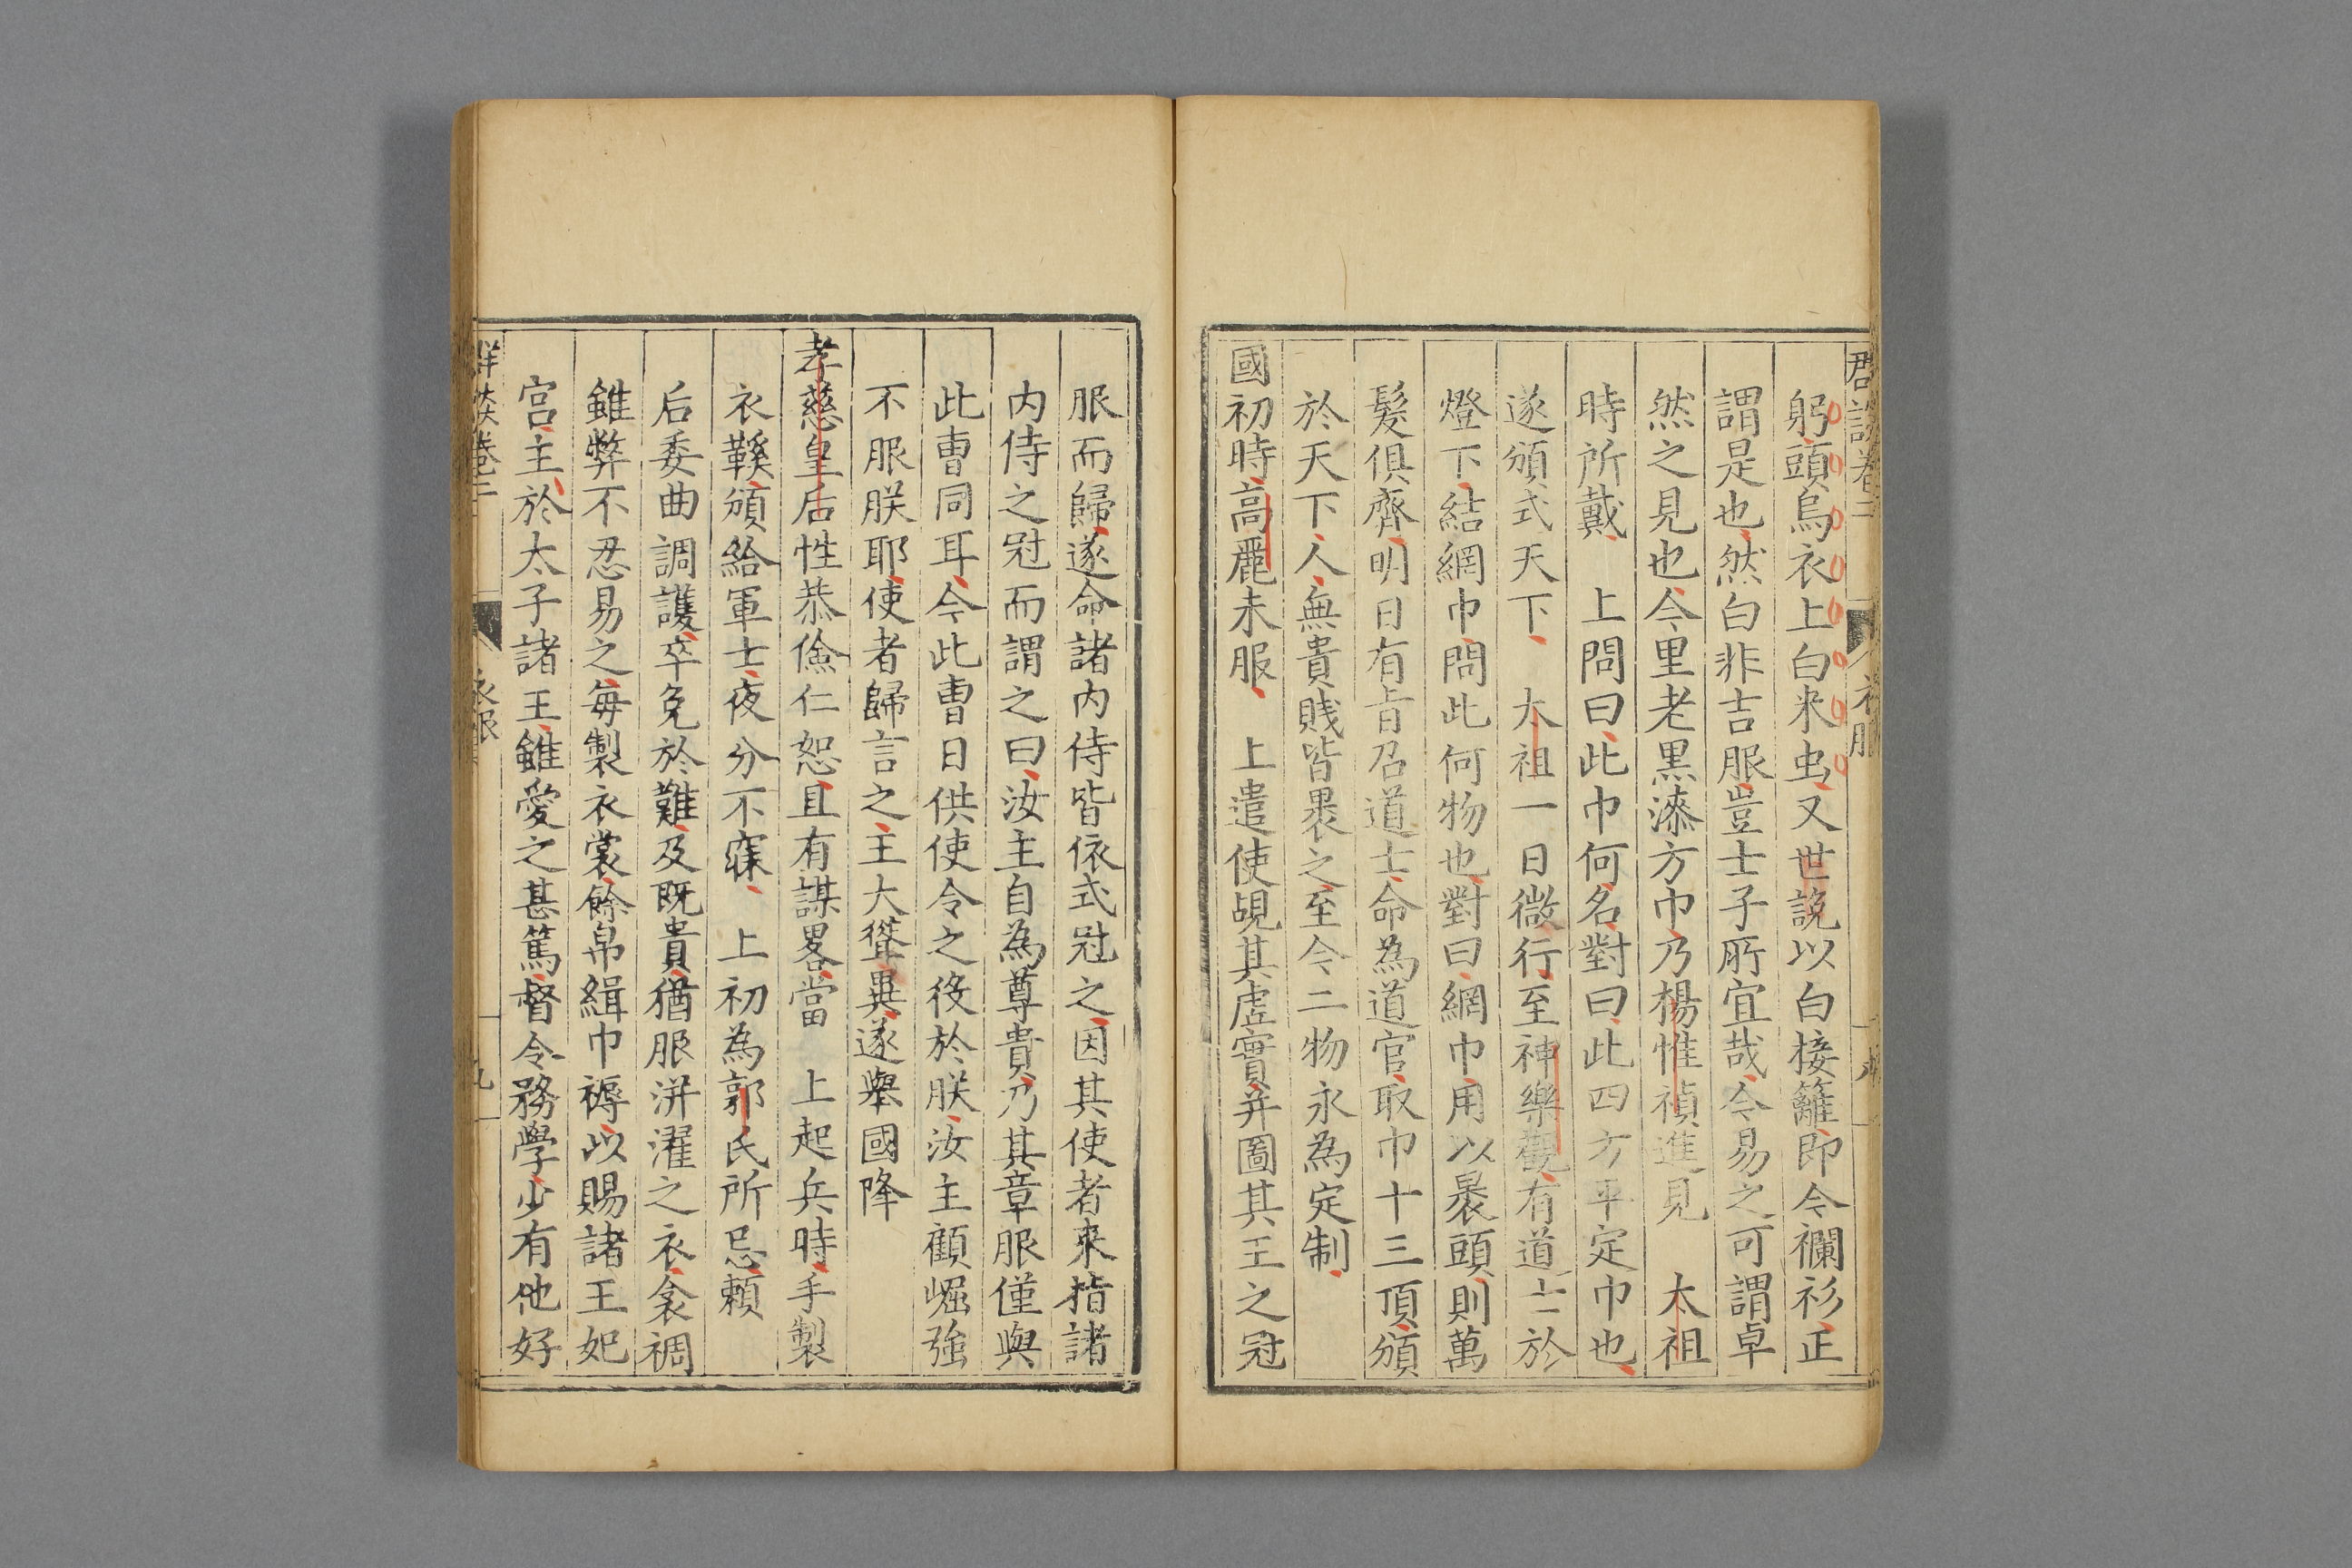 躬頭烏衣上白米虫又世說以白接籬即今襴衫正
謂是也然白非吉服豈士子所宜哉今易之可謂卓
然之見也今里老黒漆方巾乃楊惟禎進見 太祖
時所戴 上問曰此巾何名對曰此四方平定巾也
遂頒式天下 太祖一日微行至神樂觀有道士於
燈下結網巾問此何物也對曰網巾用以裹頭則萬
髮俱齊明日有旨召道士命為道官取巾十三頂頒
於天下人無貴賤皆裹之至今二物永為定制
國初時高麗未服 上遣使覘其虛實并圖其王之冠
服而歸遂命諸内侍皆依式冠之因其使者來指諸
内侍之冠而謂之曰汝主自為尊貴乃其章服僅與
此曹同耳今此曹日供使令之役於朕汝主顧崛強
不服朕耶使者歸言之主大聳異遂舉國降
孝慈皇后性恭儉仁恕且有謀畧當 上起兵時手製
衣鞵頒給軍士夜分不寐 上初為郭氏所忌頼
后委曲調護卒免於難及既貴猶服洴濯之衣衾裯
雖弊不忍易之毎製衣裳餘帛緝巾褥以賜諸王妃
宫主於太子諸王雖愛之甚篤督令務學少有他好